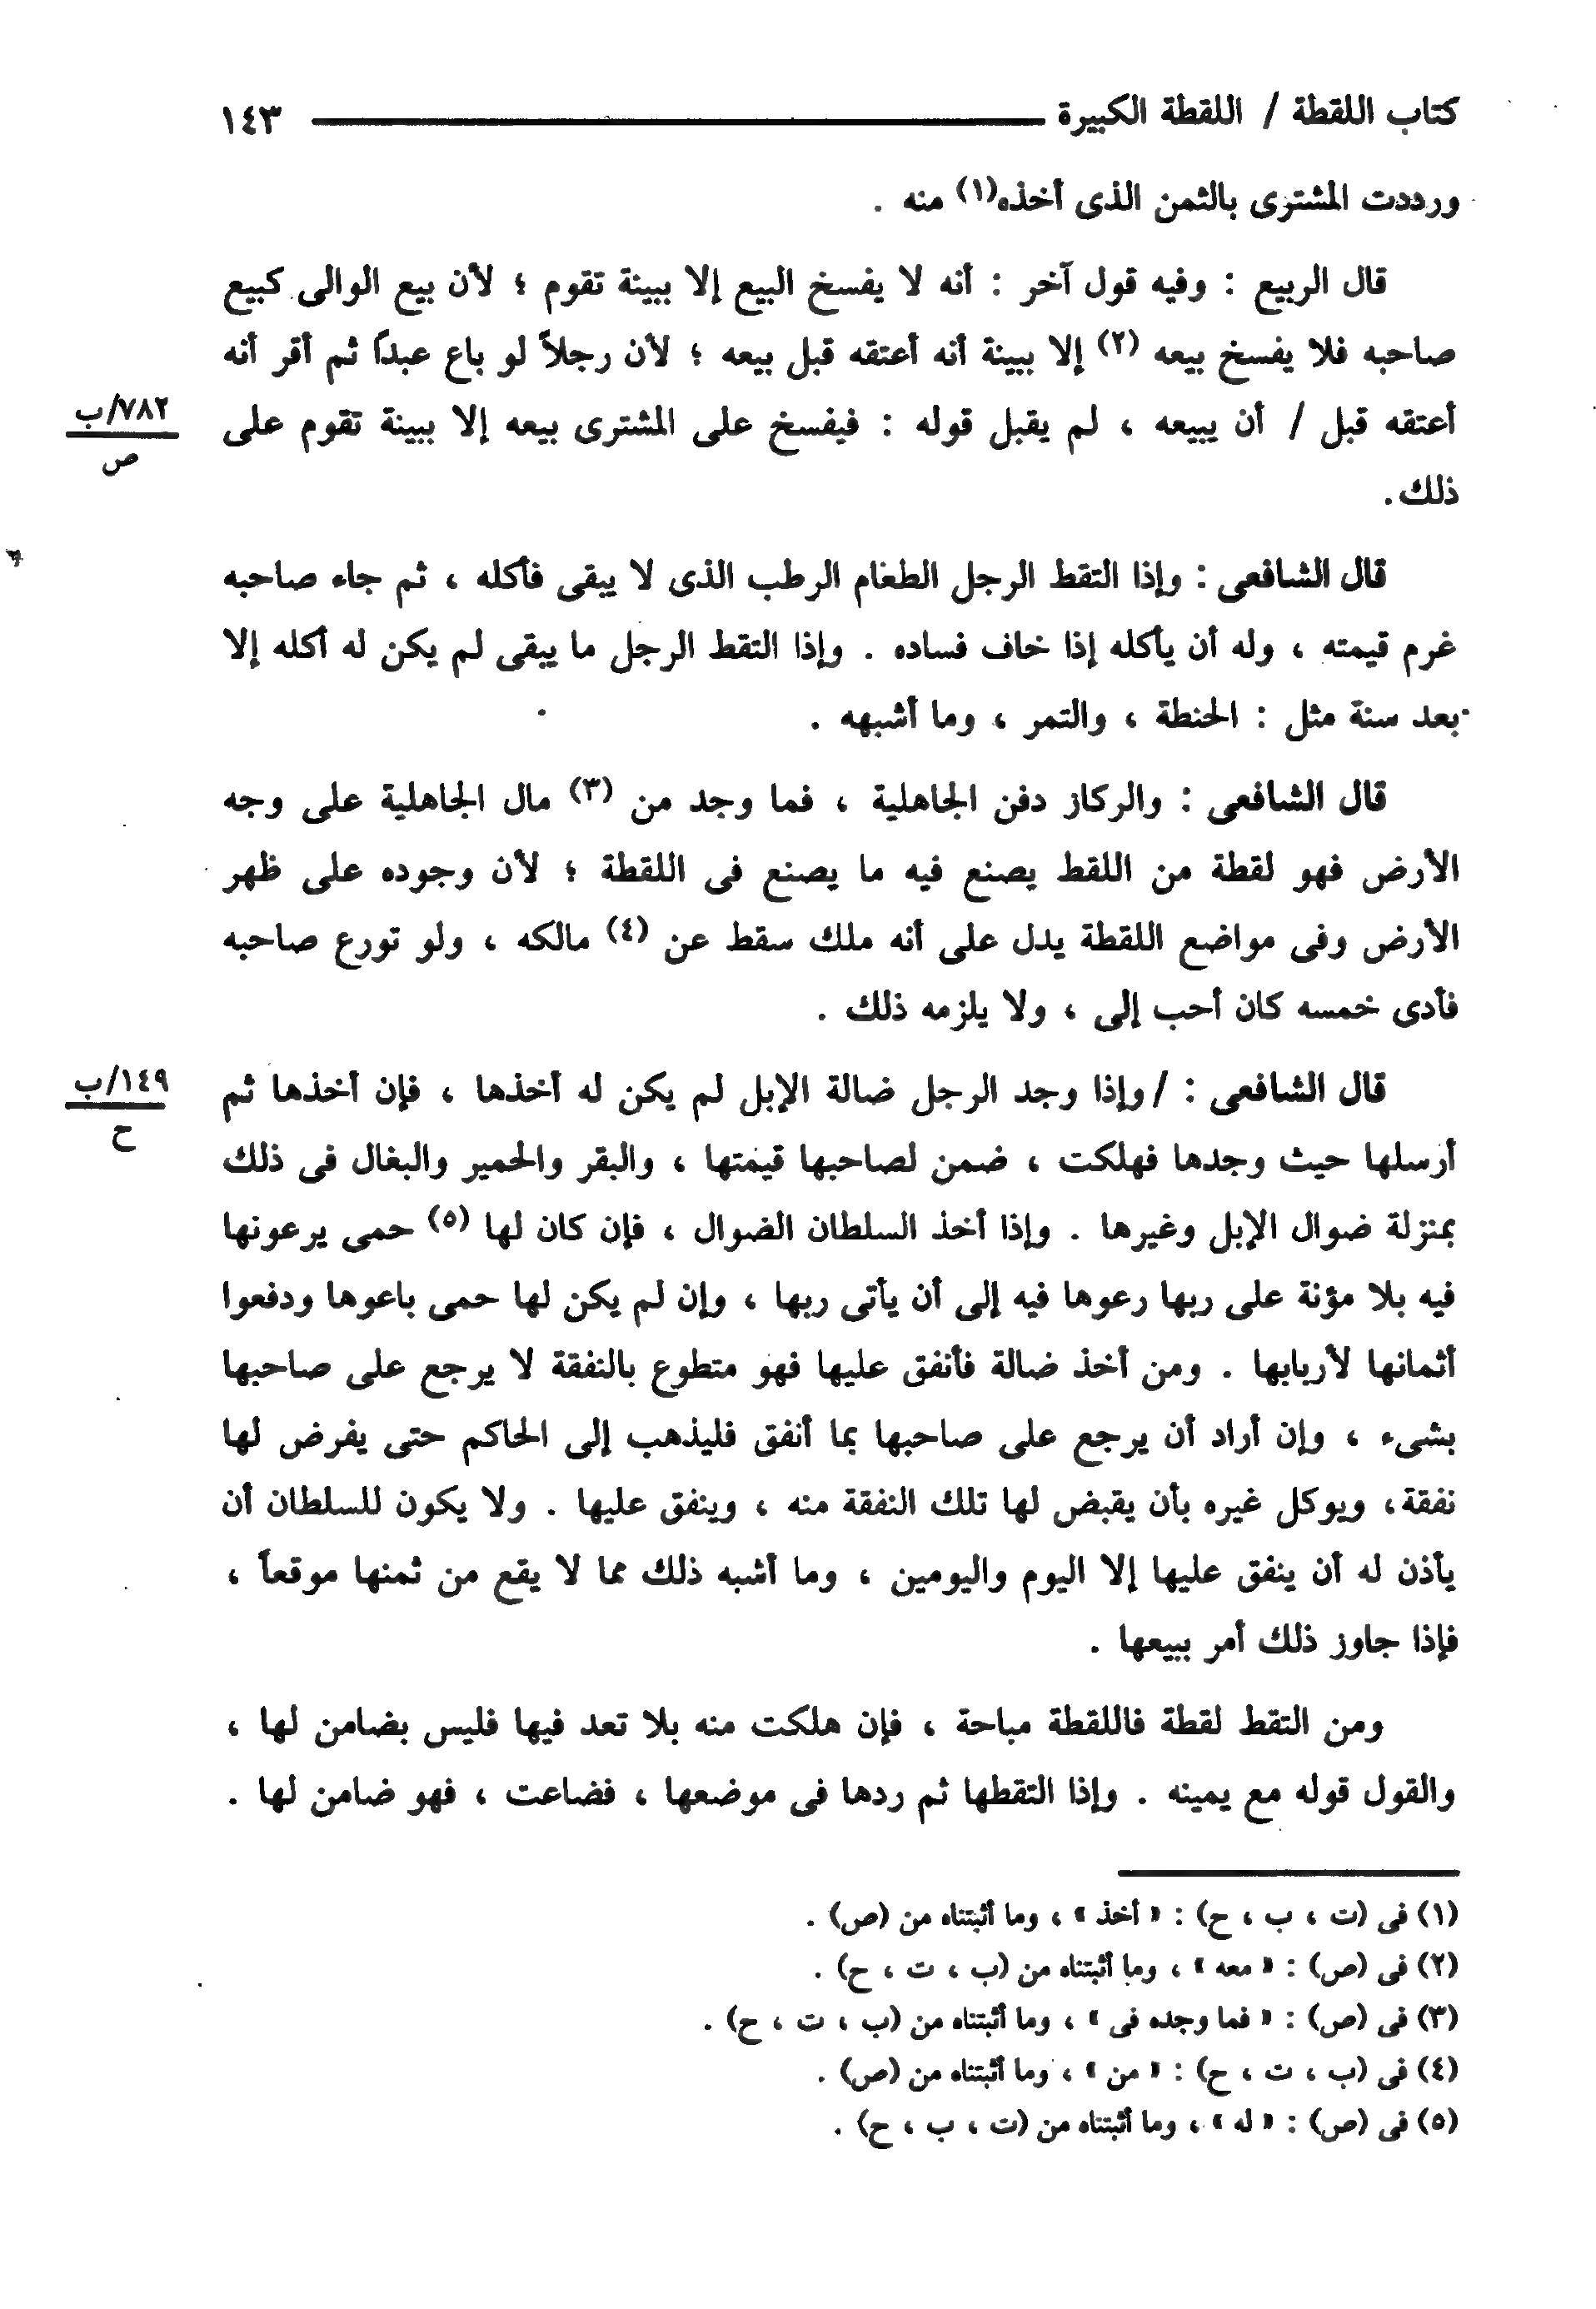 كتاب اللقطة / اللقطة الكبيرة ١٤٣
ورددت المشترى بالثمن الذى أخذه(١) منه .
قال الربيع : وفيه قول آخر : أنه لا يفسخ البيع إلا ببينة تقوم ؛ لأن بيع الوالى كبيع
صاحبه فلا يفسخ بيعه (٢) إلا ببينة أنه أعتقه قبل بيعه ؛ لأن رجلاً لو باع عبداً ثم أقر أنه
أعتقه قبل / أن يبيعه ، لم يقبل قوله : فيفسخ على المشترى بيعه إلا ببينة تقوم على
٧٨٢/ب
ص
ذلك.
قال الشافعى : وإذا التقط الرجل الطعام الرطب الذى لا يبقى فأكله ، ثم جاء صاحبه
غرم قيمته ، وله أن يأكله إذا خاف فساده . وإذا التقط الرجل ما يبقى لم يكن له أكله إلا
بعد سنة مثل : الحنطة ، والتمر ، وما أشبهه .
قال الشافعى : والركاز دفن الجاهلية ، فما وجد من (٣) مال الجاهلية على وجه
الأرض فهو لقطة من اللقط يصنع فيه ما يصنع فى اللقطة ؛ لأن وجوده على ظهر
الأرض وفى مواضع اللقطة يدل على أنه ملك سقط عن (٤) مالكه ، ولو تورع صاحبه
فأدى خمسه كان أحب إلى ، ولا يلزمه ذلك .
قال الشافعى : / وإذا وجد الرجل ضالة الإبل لم يكن له أخذها ، فإن أخذها ثم
١٤٩/ب
ح
أرسلها حيث وجدها فهلكت ، ضمن لصاحبها قيمتها ، والبقر والحمير والبغال فى ذلك
بمنزلة ضوال الإبل وغيرها . وإذا أخذ السلطان الضوال ، فإن كان لها (٥) حمى يرعونها
فيه بلا مؤنة على ربها رعوها فيه إلى أن يأتى ربها ، وإن لم يكن لها حمى باعوها ودفعوا
أثمانها لأربابها . ومن أخذ ضالة فأنفق عليها فهو متطوع بالنفقة لا يرجع على صاحبها
بشىء ، وإن أراد أن يرجع على صاحبها بما أنفق فليذهب إلى الحاكم حتى يفرض لها
نفقة، ويوكل غيره بأن يقبض لها تلك النفقة منه ، وينفق عليها . ولا يكون للسلطان أن
يأذن له أن ينفق عليها إلا اليوم واليومين ، وما أشبه ذلك مما لا يقع من ثمنها موقعاً ،
فإذا جاوز ذلك أمر ببيعها .
ومن التقط لقطة فاللقطة مباحة ، فإن هلكت منه بلا تعد فيها فليس بضامن لها ،
والقول قوله مع يمينه . وإذا التقطها ثم ردها فى موضعها ، فضاعت ، فهو ضامن لها .
(١) فى (ت ، ب ، ح) : « أخذ » ، وما أثبتناه من (ص) .
(٢) فى (ص) : « معه » ، وما أثبتناه من (ب ، ت ، ح) .
(٣) فى (ص) : « فما وجده فى » ، وما أثبتناه من (ب ، ت ، ح) .
(٤) فى (ب ، ت ، ح) : « من » ، وما أثبتناه من (ص) .
(٥) فى (ص) : « له » ، وما أثبتناه من (ت ، ب ، ح) .